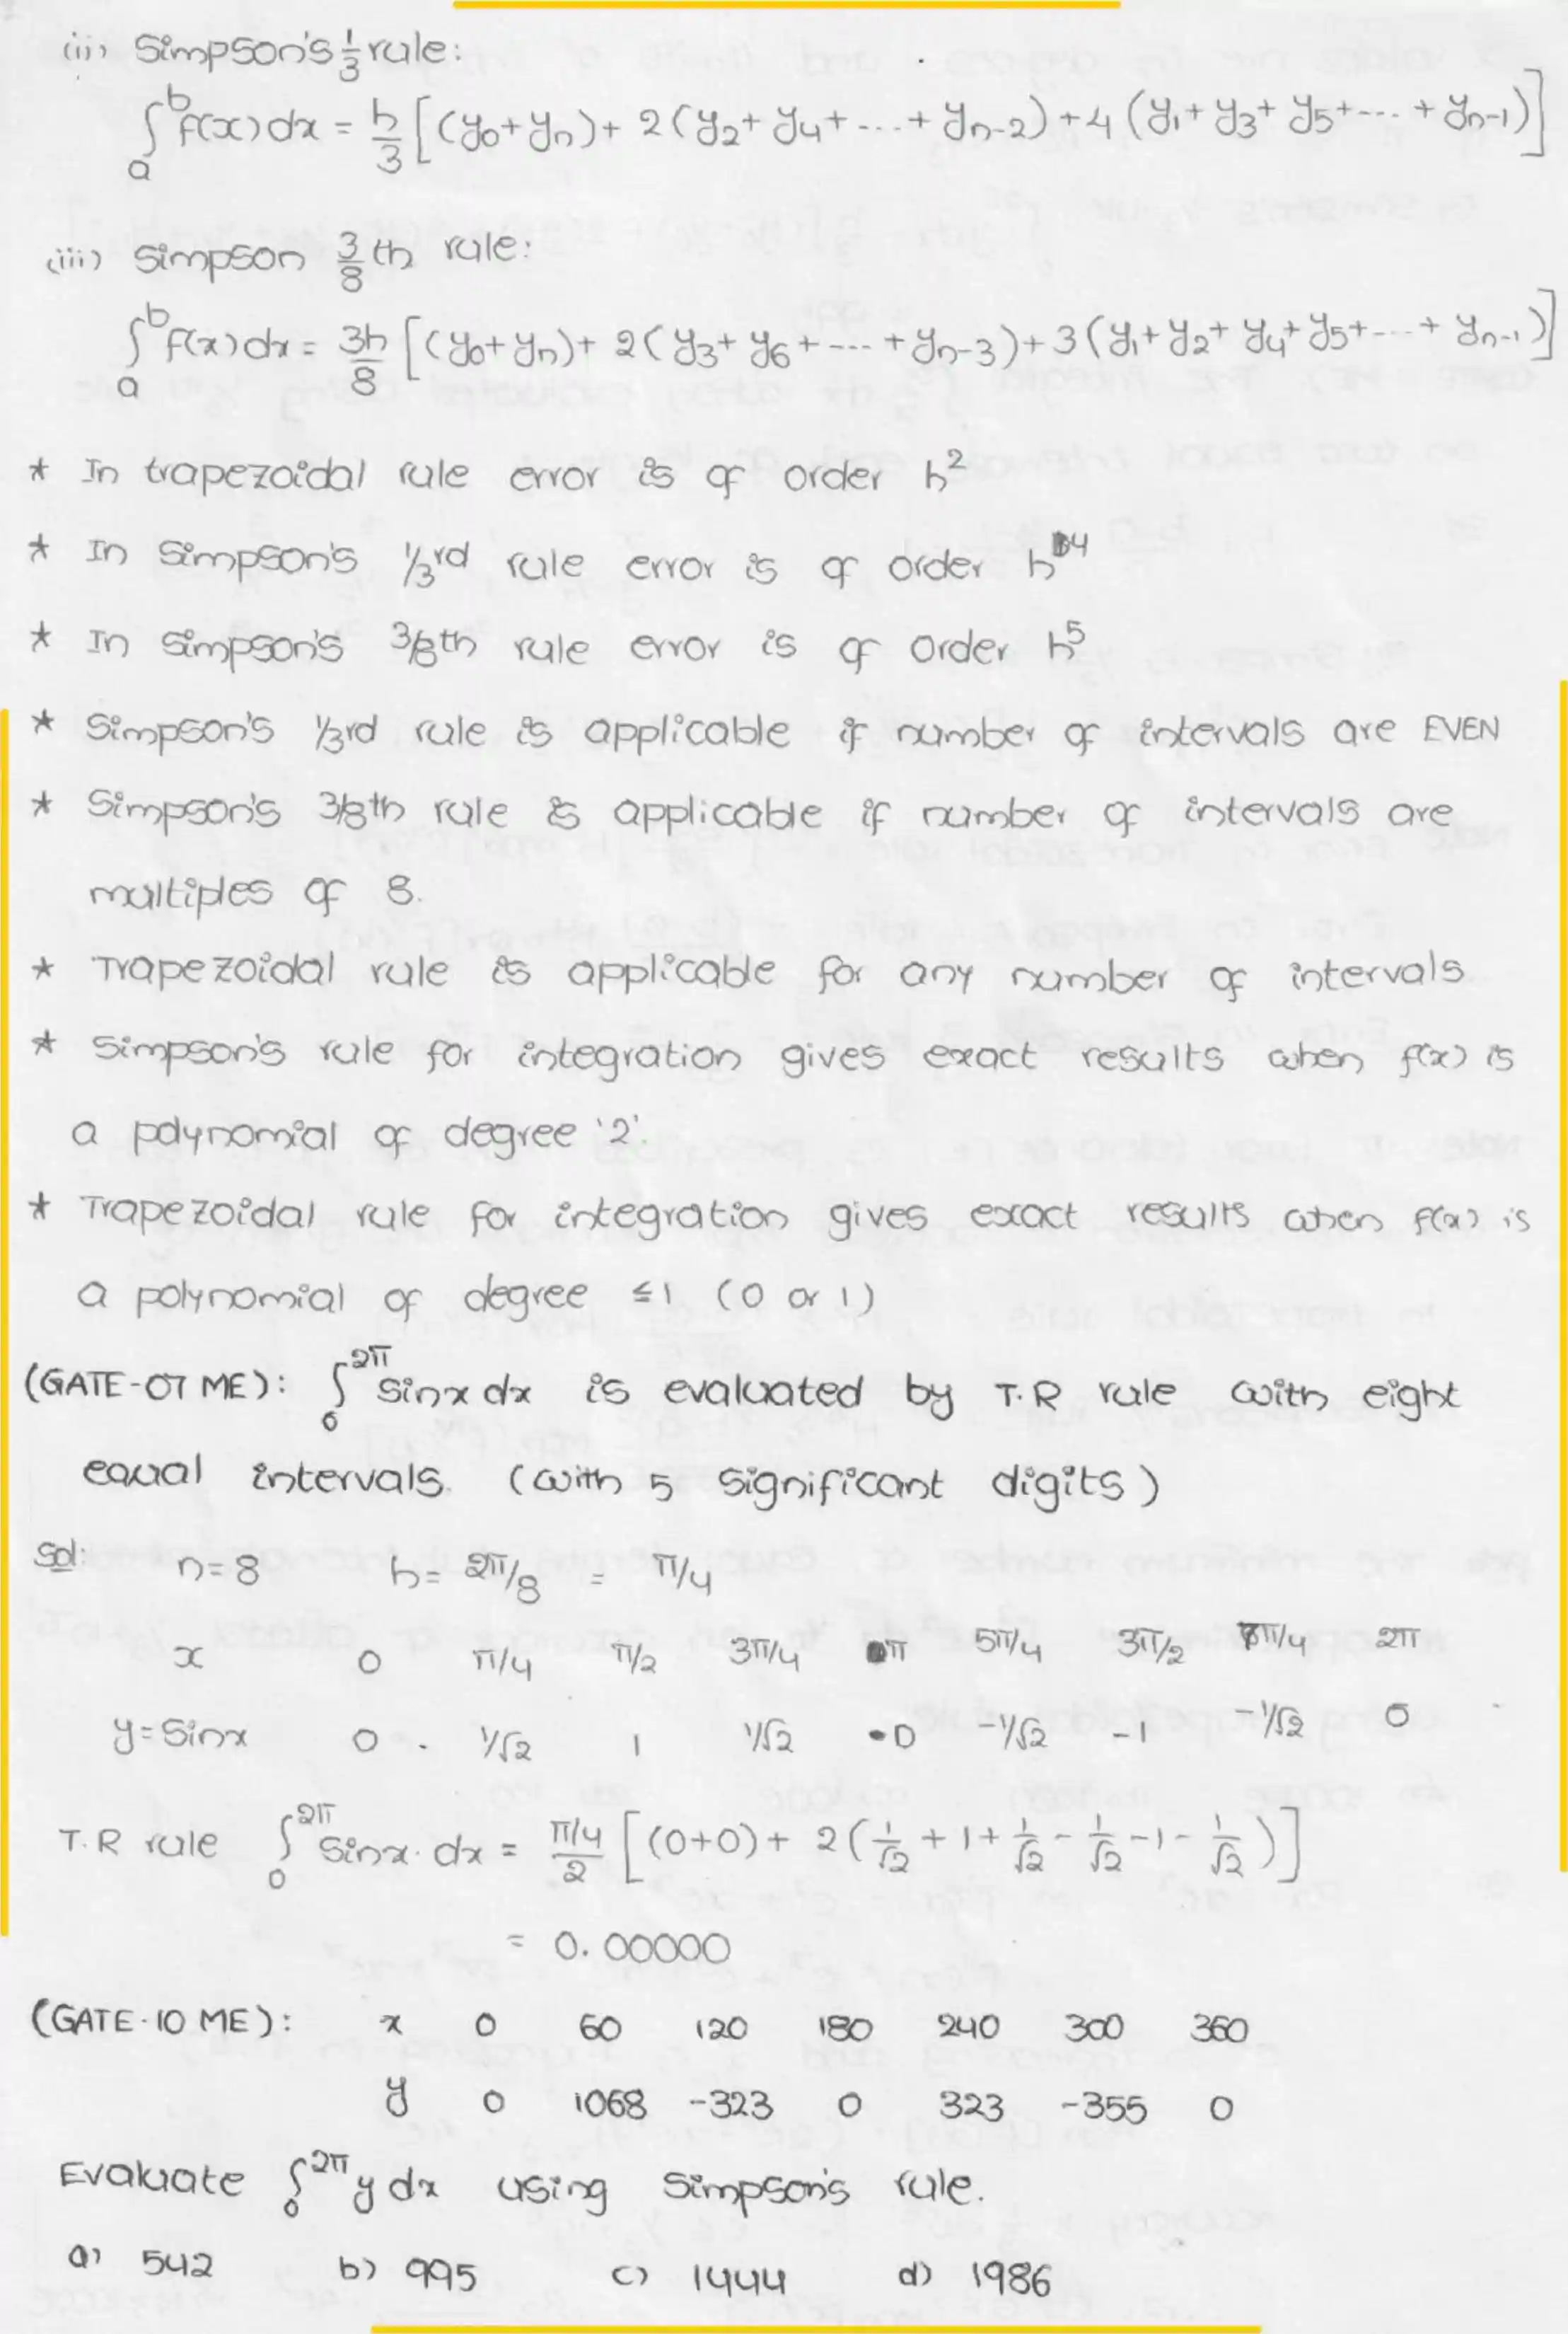 (ii) Simpson's 1/3 rule:
∫ₐᵇ f(x) dx = h/3 [(y₀+yₙ)+ 2(y₂+ y₄+ ... + yₙ₋₂) +4 (y₁+ y₃+ y₅+ ... + yₙ₋₁)]
(iii) Simpson 3/8 th rule:
∫ₐᵇ f(x) dx = 3h/8 [(y₀+yₙ)+ 2(y₃+ y₆ + --- +yₙ₋₃)+3(y₁+y₂+ y₄+y₅+ --- + yₙ₋₁)]
* In trapezoidal rule error is of order h²
* In Simpson's 1/3rd rule error is of order h⁴
* In Simpson's 3/8th rule error is of order h⁵
* Simpson's 1/3rd rule is applicable if number of intervals are EVEN
* Simpson's 3/8th rule is applicable if number of intervals are
multiples of 8.
* Trapezoidal rule is applicable for any number of intervals
* Simpson's rule for integration gives exact results when f(x) is
a polynomial of degree '2'.
* Trapezoidal rule for integration gives exact results when f(x) is
a polynomial of degree ≤1 (0 or 1)
(GATE-07 ME): ∫₀^2π sinx dx is evaluated by T.R rule with eight
equal intervals. (with 5 significant digits)
Sol: n=8 h= 2π/8 = π/4
x 0 π/4 π/2 3π/4 π 5π/4 3π/2 7π/4 2π
y=Sinx 0 1/√2 1 1/√2 0 -1/√2 -1 -1/√2 0
T.R rule ∫₀^2π Sinx. dx = π/4/2 [(0+0)+ 2(1/√2 + 1+ 1/√2 - 1/√2 -1- 1/√2)]
= 0.00000
(GATE-10 ME): x 0 60 120 180 240 300 360
y 0 1068 -323 0 323 -355 0
Evaluate ∫₀^2π y dx using Simpson's rule.
a) 542 b) 995 c) 1444 d) 1986